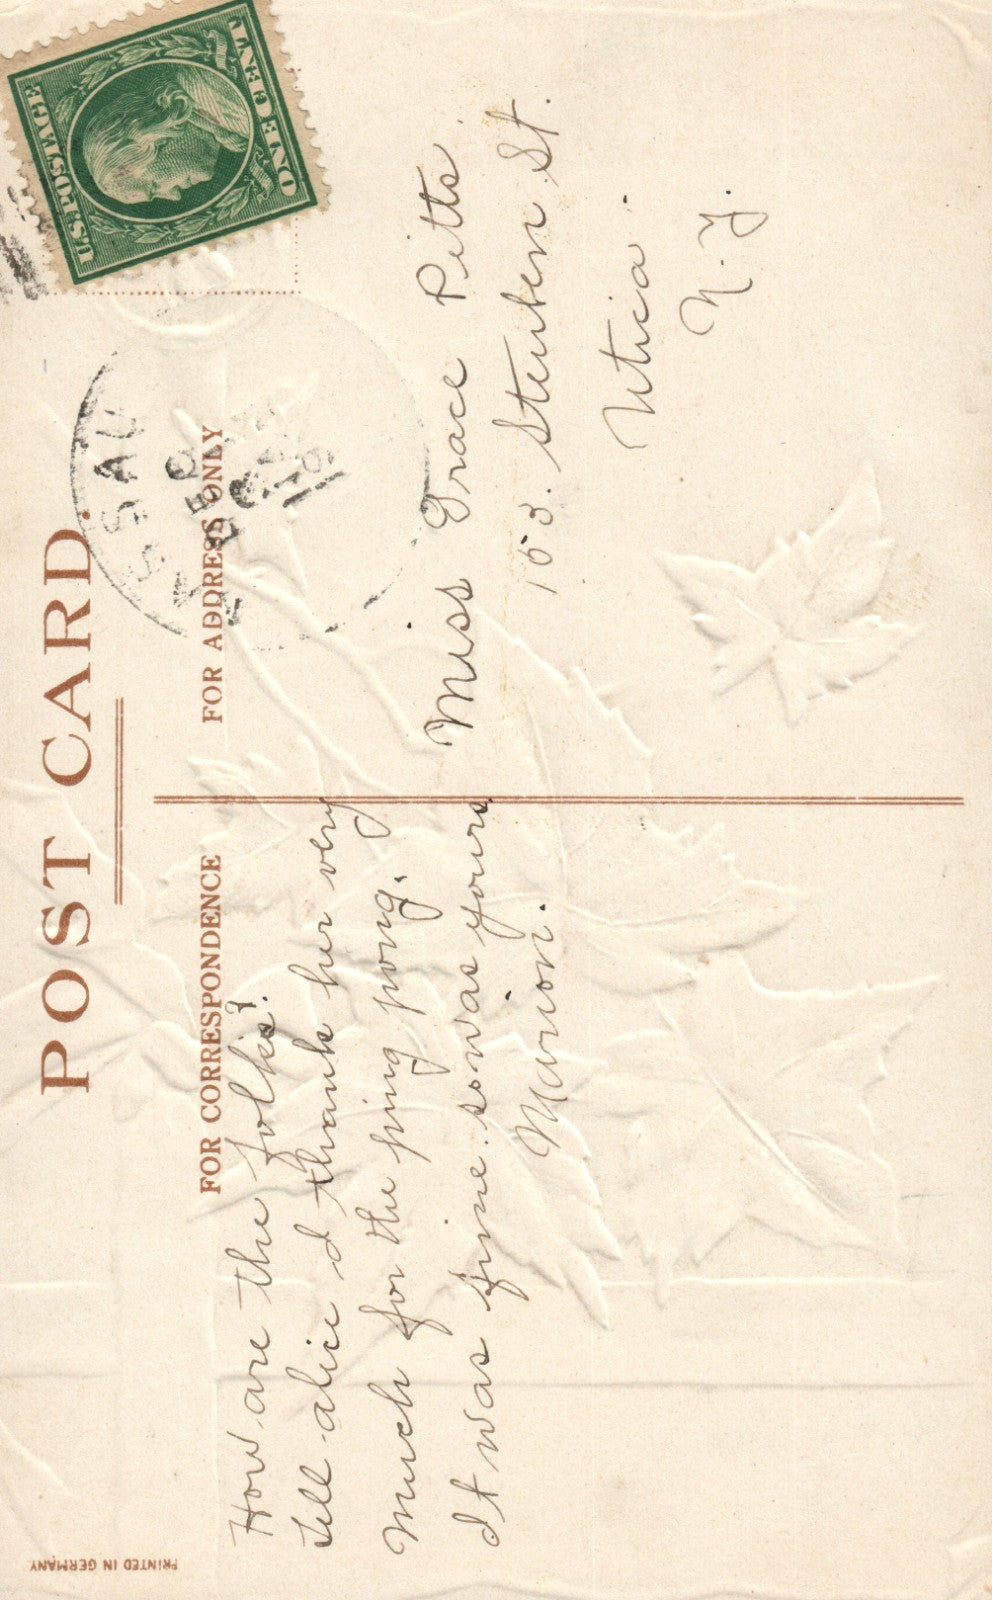 POST CARD.
FOR CORRESPONDENCE
FOR ADDRESS ONLY
U.S. POSTAGE
ONE CENT
How are the folks?
Tell alice I thank her very
much for the ping pong.
It was fine. so was yours
Marion.
Miss Grace Pitts.
153. Steuben St.
Utica.
N. Y
PRINTED IN GERMANY